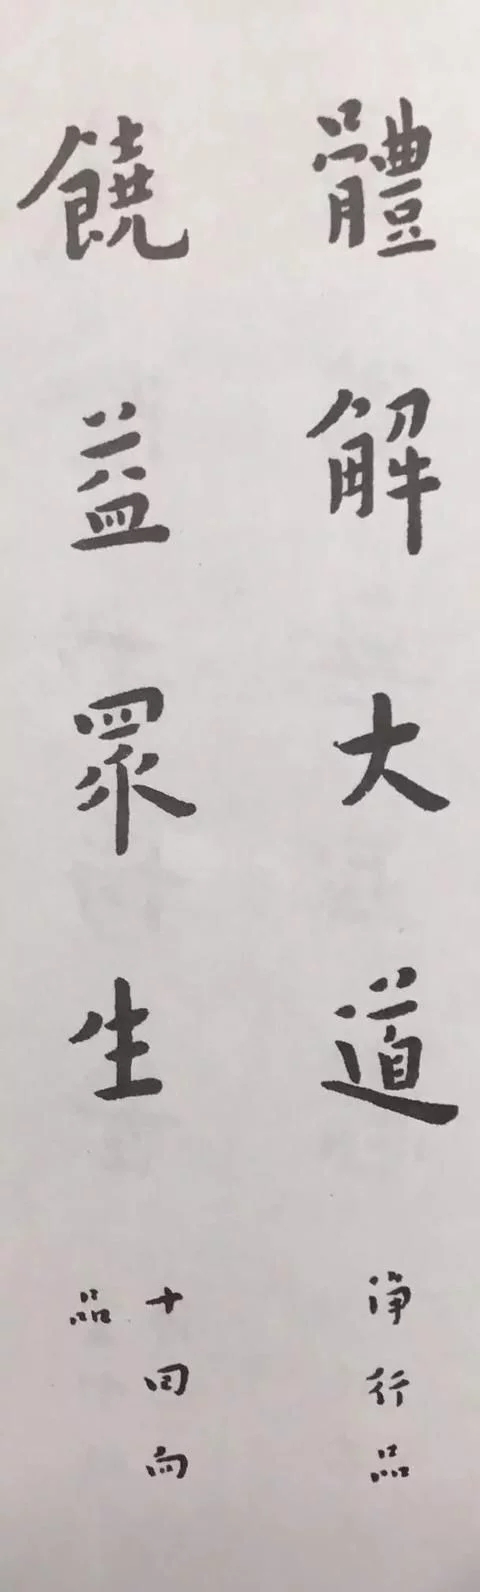 體解大道
淨行品
饒益眾生
十回向
品